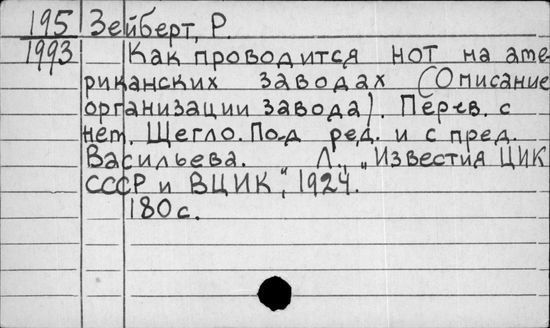 195 Зейберт, Р.
1993 Как проводится НОТ на аме-
риканских заводах (Описание
организации завода). Перев. с
нем. Щегло. Под ред. и с пред.
Васильева. Л., „Известия ЦИК
СССР и ВЦИК", 1924.
180 с.